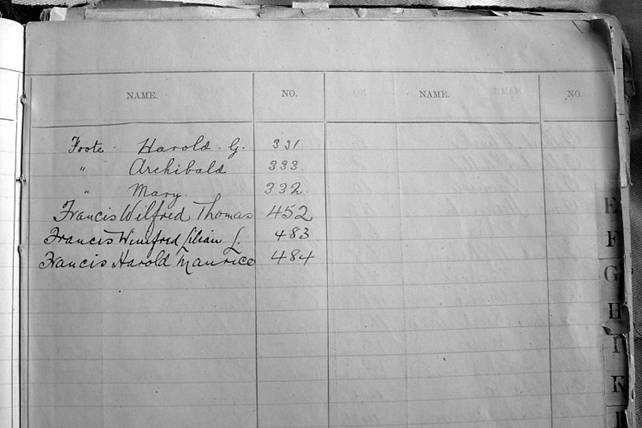 NAME. NO. NAME. NO.
Foote. Harold G. 331
" Archibald 333
" Mary 332
Francis Wilfred Thomas 452
Francis Winifred Lilian L. 483
Francis Harold Maurice 484
E
F
G
H
I
K
L